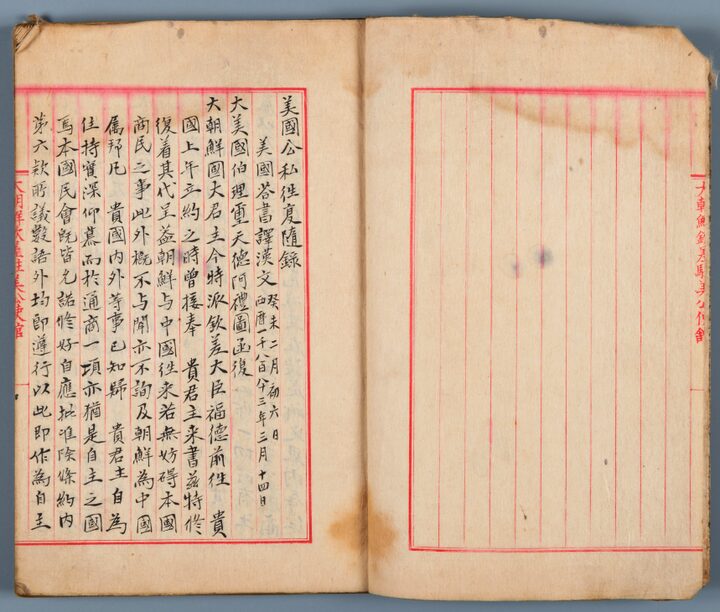 大朝鮮欽差駐美公使館
美國公私往復隨錄
美國答書譯漢文 癸未二月初六日
西曆一千八百八十三年三月十四日
大美國伯理璽天德阿禮圖函復
大朝鮮國大君主今時派欽差大臣福德前往 貴
國上年立約之時曾接奉 貴君主來書茲特修
復着其代呈益朝鮮與中國往來若無妨碍本國
商民之事此外概不与聞亦不詢及朝鮮為中國
屬邦凡 貴國內外等事已知歸 貴君主自為
住持實深仰慕而於通商一項亦猶是自主之國
焉本國民會既皆允諾修好自應批准除條約內
第六欵所議數語外均即遵行以此即作為自主
大朝鮮欽差駐美公使館